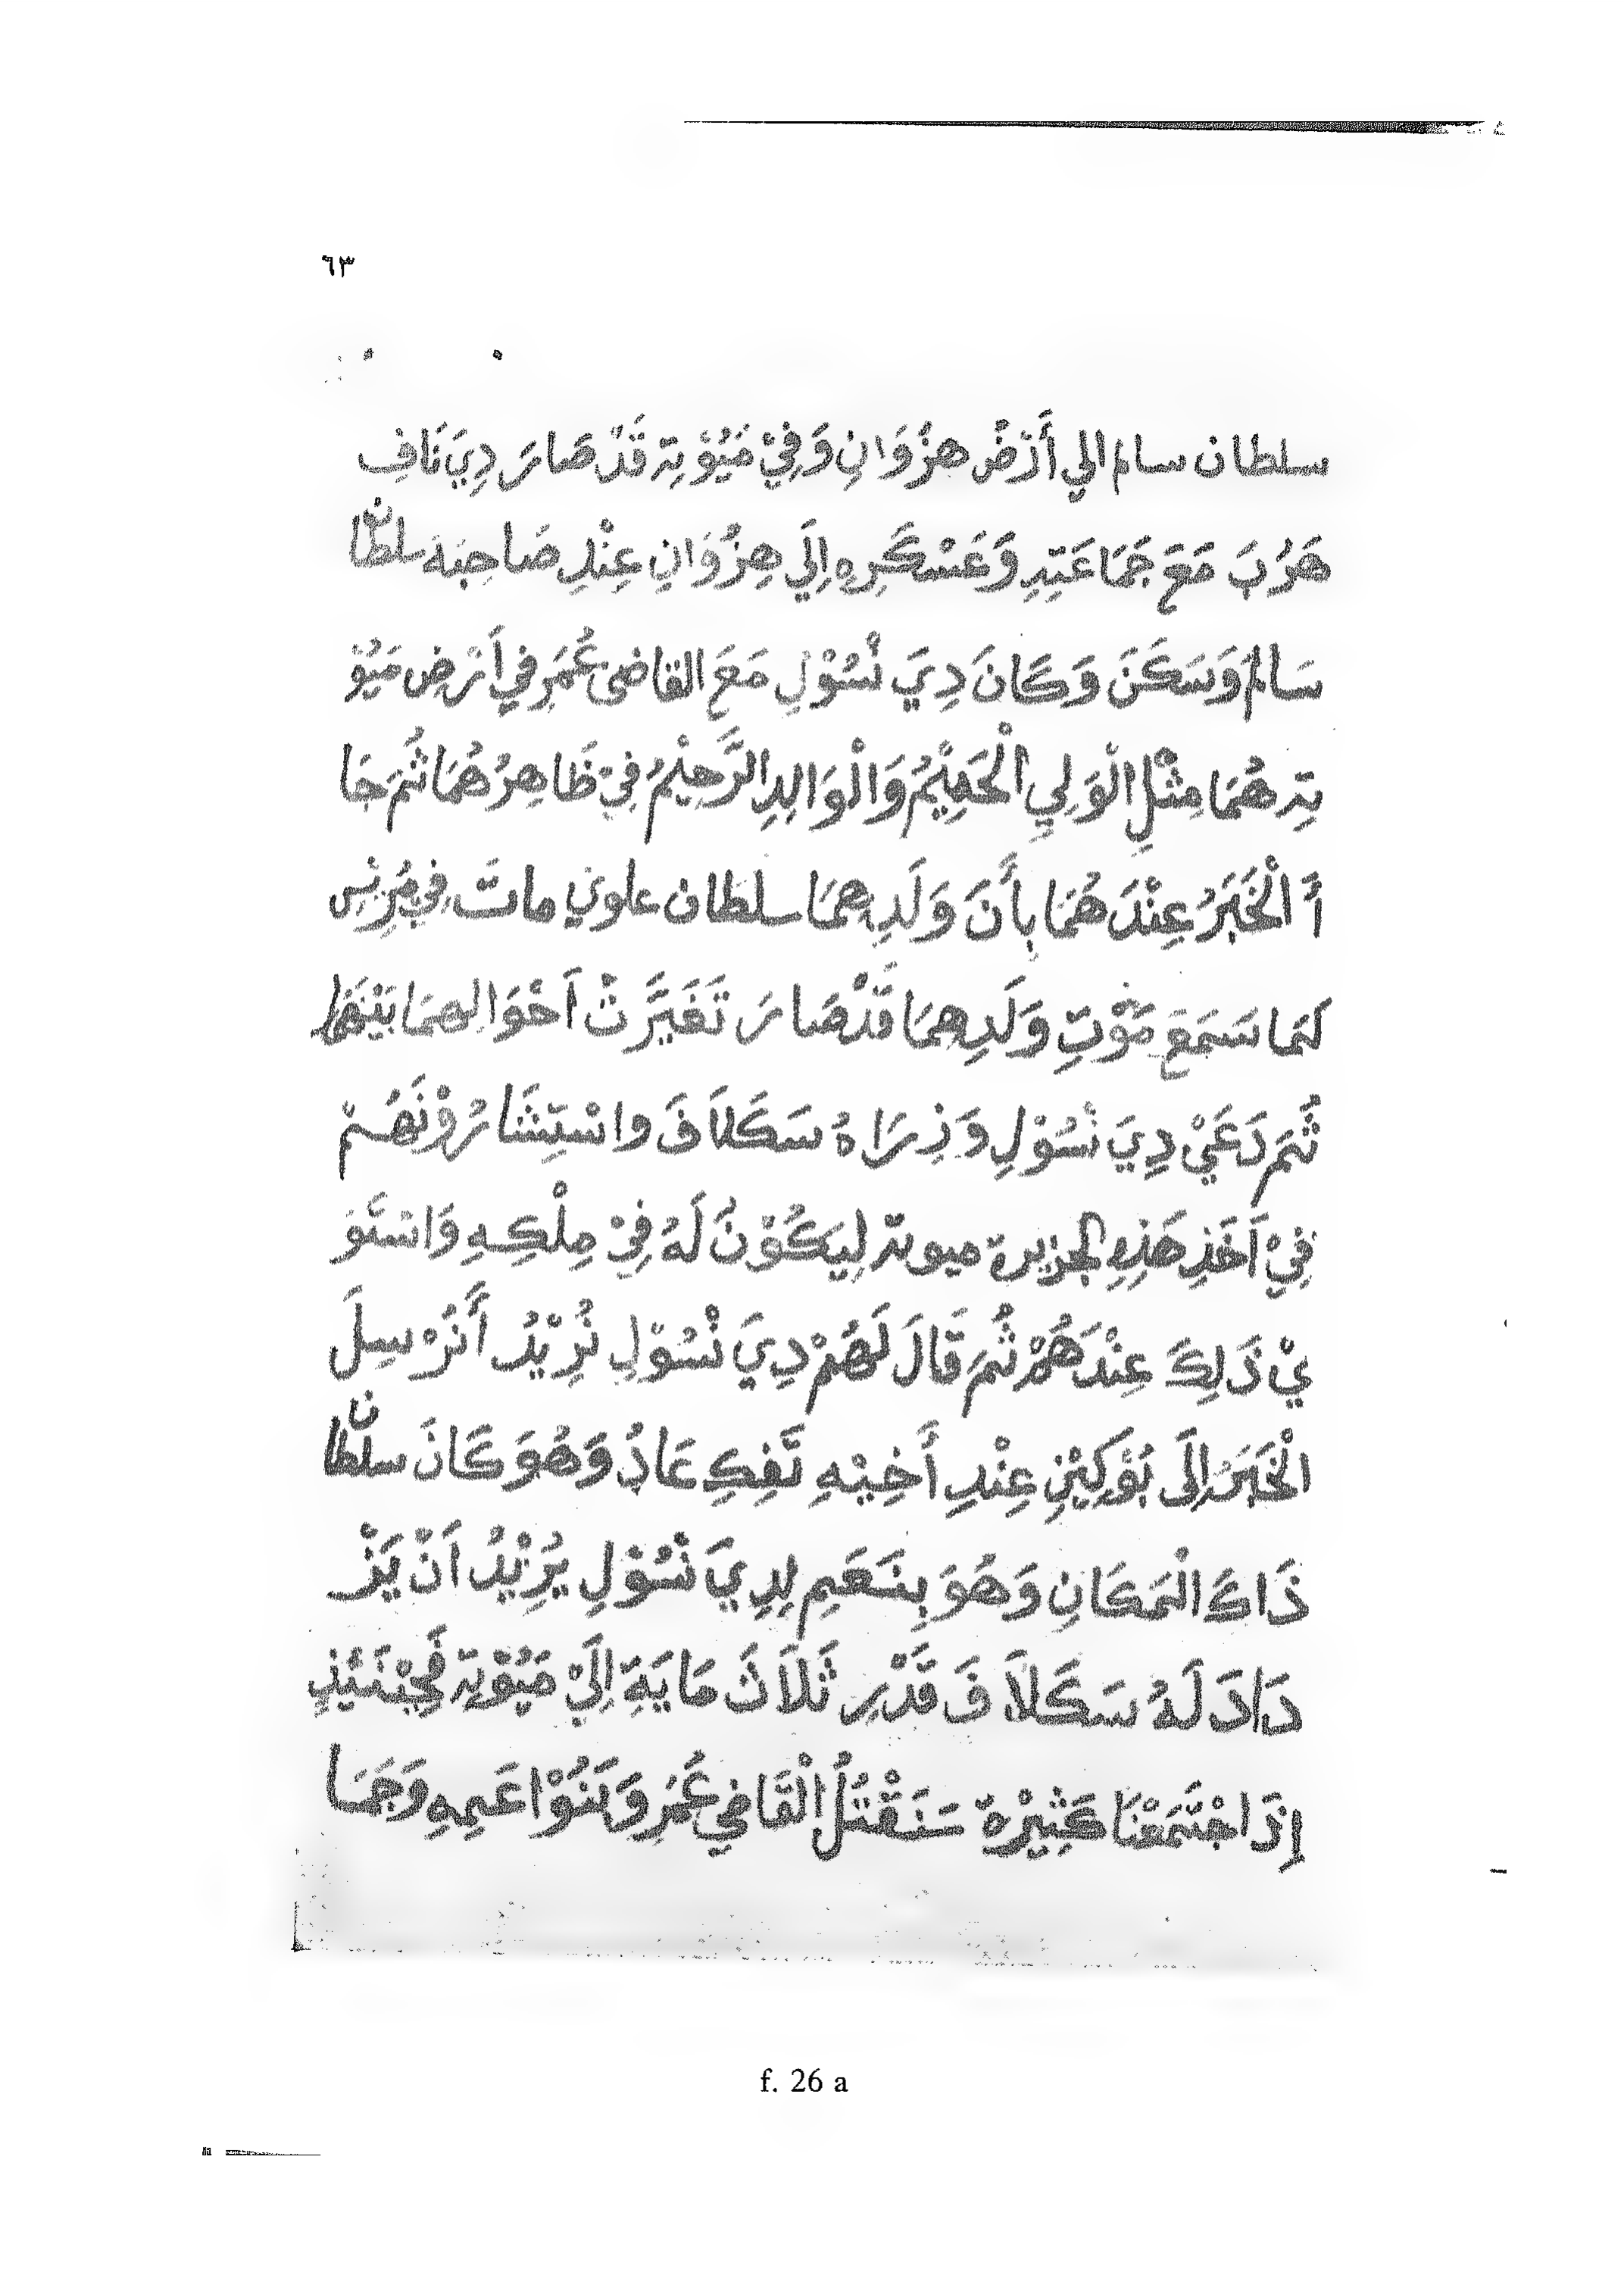 ٦٣
سلطان سالم الي أَرْضٌ هزُوَانِ وَفِيْ مَيُوْتِة قَدْ صَارَ دِيَ نَافِ
هَرُبَ مَعَ جَمَاعَتِدِ وَعَسْكَرِهِ اِلَي هِزُوَانِ عِنْدِ صَاحِبَهَ سلطان
سَالِمْ وَسَكَنَ وَكَانَ دِيَ نْسُوْلِ مَعَ القاضى عُمَرِ في اَرْضِ مَيُوْ
تِة هُمَا مِثْلِ الْوَلِيِ الْحَمِيْمُ وَالْوَالِدِ الرَّحِيْمُ فِيْ ظَاهِرُهُمَا ثُمَ جَا
أَ الْخَبَرُ عِنْدَهُمَا بِأَنَ وَلَدِهِمَا سلطان علوي ماتَ فِي مُرِنْسِ
كَمَا سَمَعَ مَوْتِ وَلَدِهِمَا قَدْ صَارَ تَغَيَّرَتْ اَحْوَالِهمَا بَيْنَهُمَا
ثُمَ دَعَيْ دِيَ نْسُوْلِ وَذِرَاهُ سَكَلَافَ واسْتِشَارُوْنَهُمْ
فِيْ اَخَذِ هَذِهِ الجزيرة ميوتة لِيَكُوْنُ لَهُ فِيْ مِلْكِهِ وَاسْتَوَ
يْ ذَلِكَ عِنْدَهُمْ ثُمَ قَالَ لَهُمْ دِيَ نْسُوْلِ نُرِيْدُ أَنُرْسِلَ
الْخَبَرُ اِلَى بُوْكِيْنِ عِنْدِ أَخِيْهِ تَفِكِ عَادُ وَهُوَ كَانَ سلطان
ذَاكَ الْمَكَانِ وَهُوَ بِنَعَمِ لِدِيَ نْسُوْلِ يُرِيْدُ اَنْ يَزْ
دَادَ لَهُ سَكَلَافَ قَدْرِ ثَلَاثَ مَايَةَ اِلَيْ مَيُوْتِة فَحِيْنَئِيْذِ
اِذَا جْتَمَعْنَا كَثِيْرَةْ سَنَقْتُلُ الْقَاضِي عُمَرِ وَبَنُوْا عَمِهِ وَجَمَا
f. 26 a